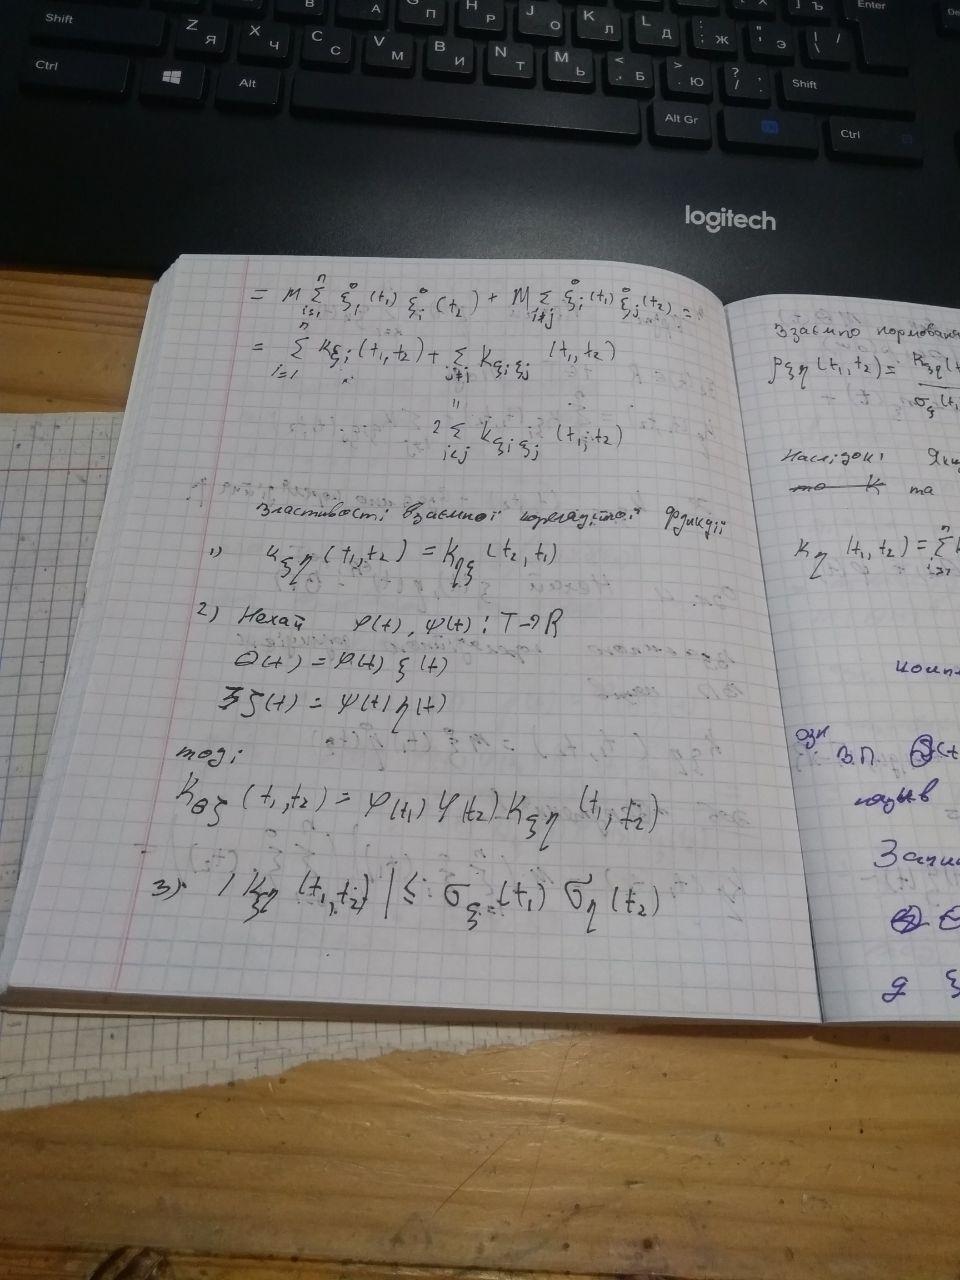 Shift
Z Я X Ч C С V М B И N Т M Ь < , Б > . Ю ? / . Shift
Ctrl Alt Alt Gr Ctrl
Enter
logitech
= M Σ_{i=1}^{n} ξ̊_i(t₁) ξ̊_i(t₂) + M Σ_{i≠j} ξ̊_i(t₁) ξ̊_j(t₂) =
= Σ_{i=1}^{n} K_{ξ_i}(t₁,t₂) + Σ_{j≠i} K_{ξ_iξ_j}(t₁,t₂)
"
2 Σ_{i<j} K_{ξ_iξ_j}(t₁,t₂)
Властивості взаємної кореляційної функції
1) K_{ξη}(t₁,t₂) = K_{ηξ}(t₂,t₁)
2) Нехай φ(t), ψ(t) : T→R
Θ(t) = φ(t) ξ(t)
ζ(t) = ψ(t) η(t)
тоді
K_{Θζ}(t₁,t₂) = φ(t₁) ψ(t₂) K_{ξη}(t₁,t₂)
3) |K_{ξη}(t₁,t₂)| ≤ σ_ξ(t₁) σ_η(t₂)
Взаємно нормована
ρ_{ξη}(t₁,t₂) = K_{ξη}(t
σ_ξ(t₁
Наслідок: Якщ
то K та
K_η(t₁,t₂) = Σ_{i=1}^{n} K
компл
Озн. В.П.
назив
Запи